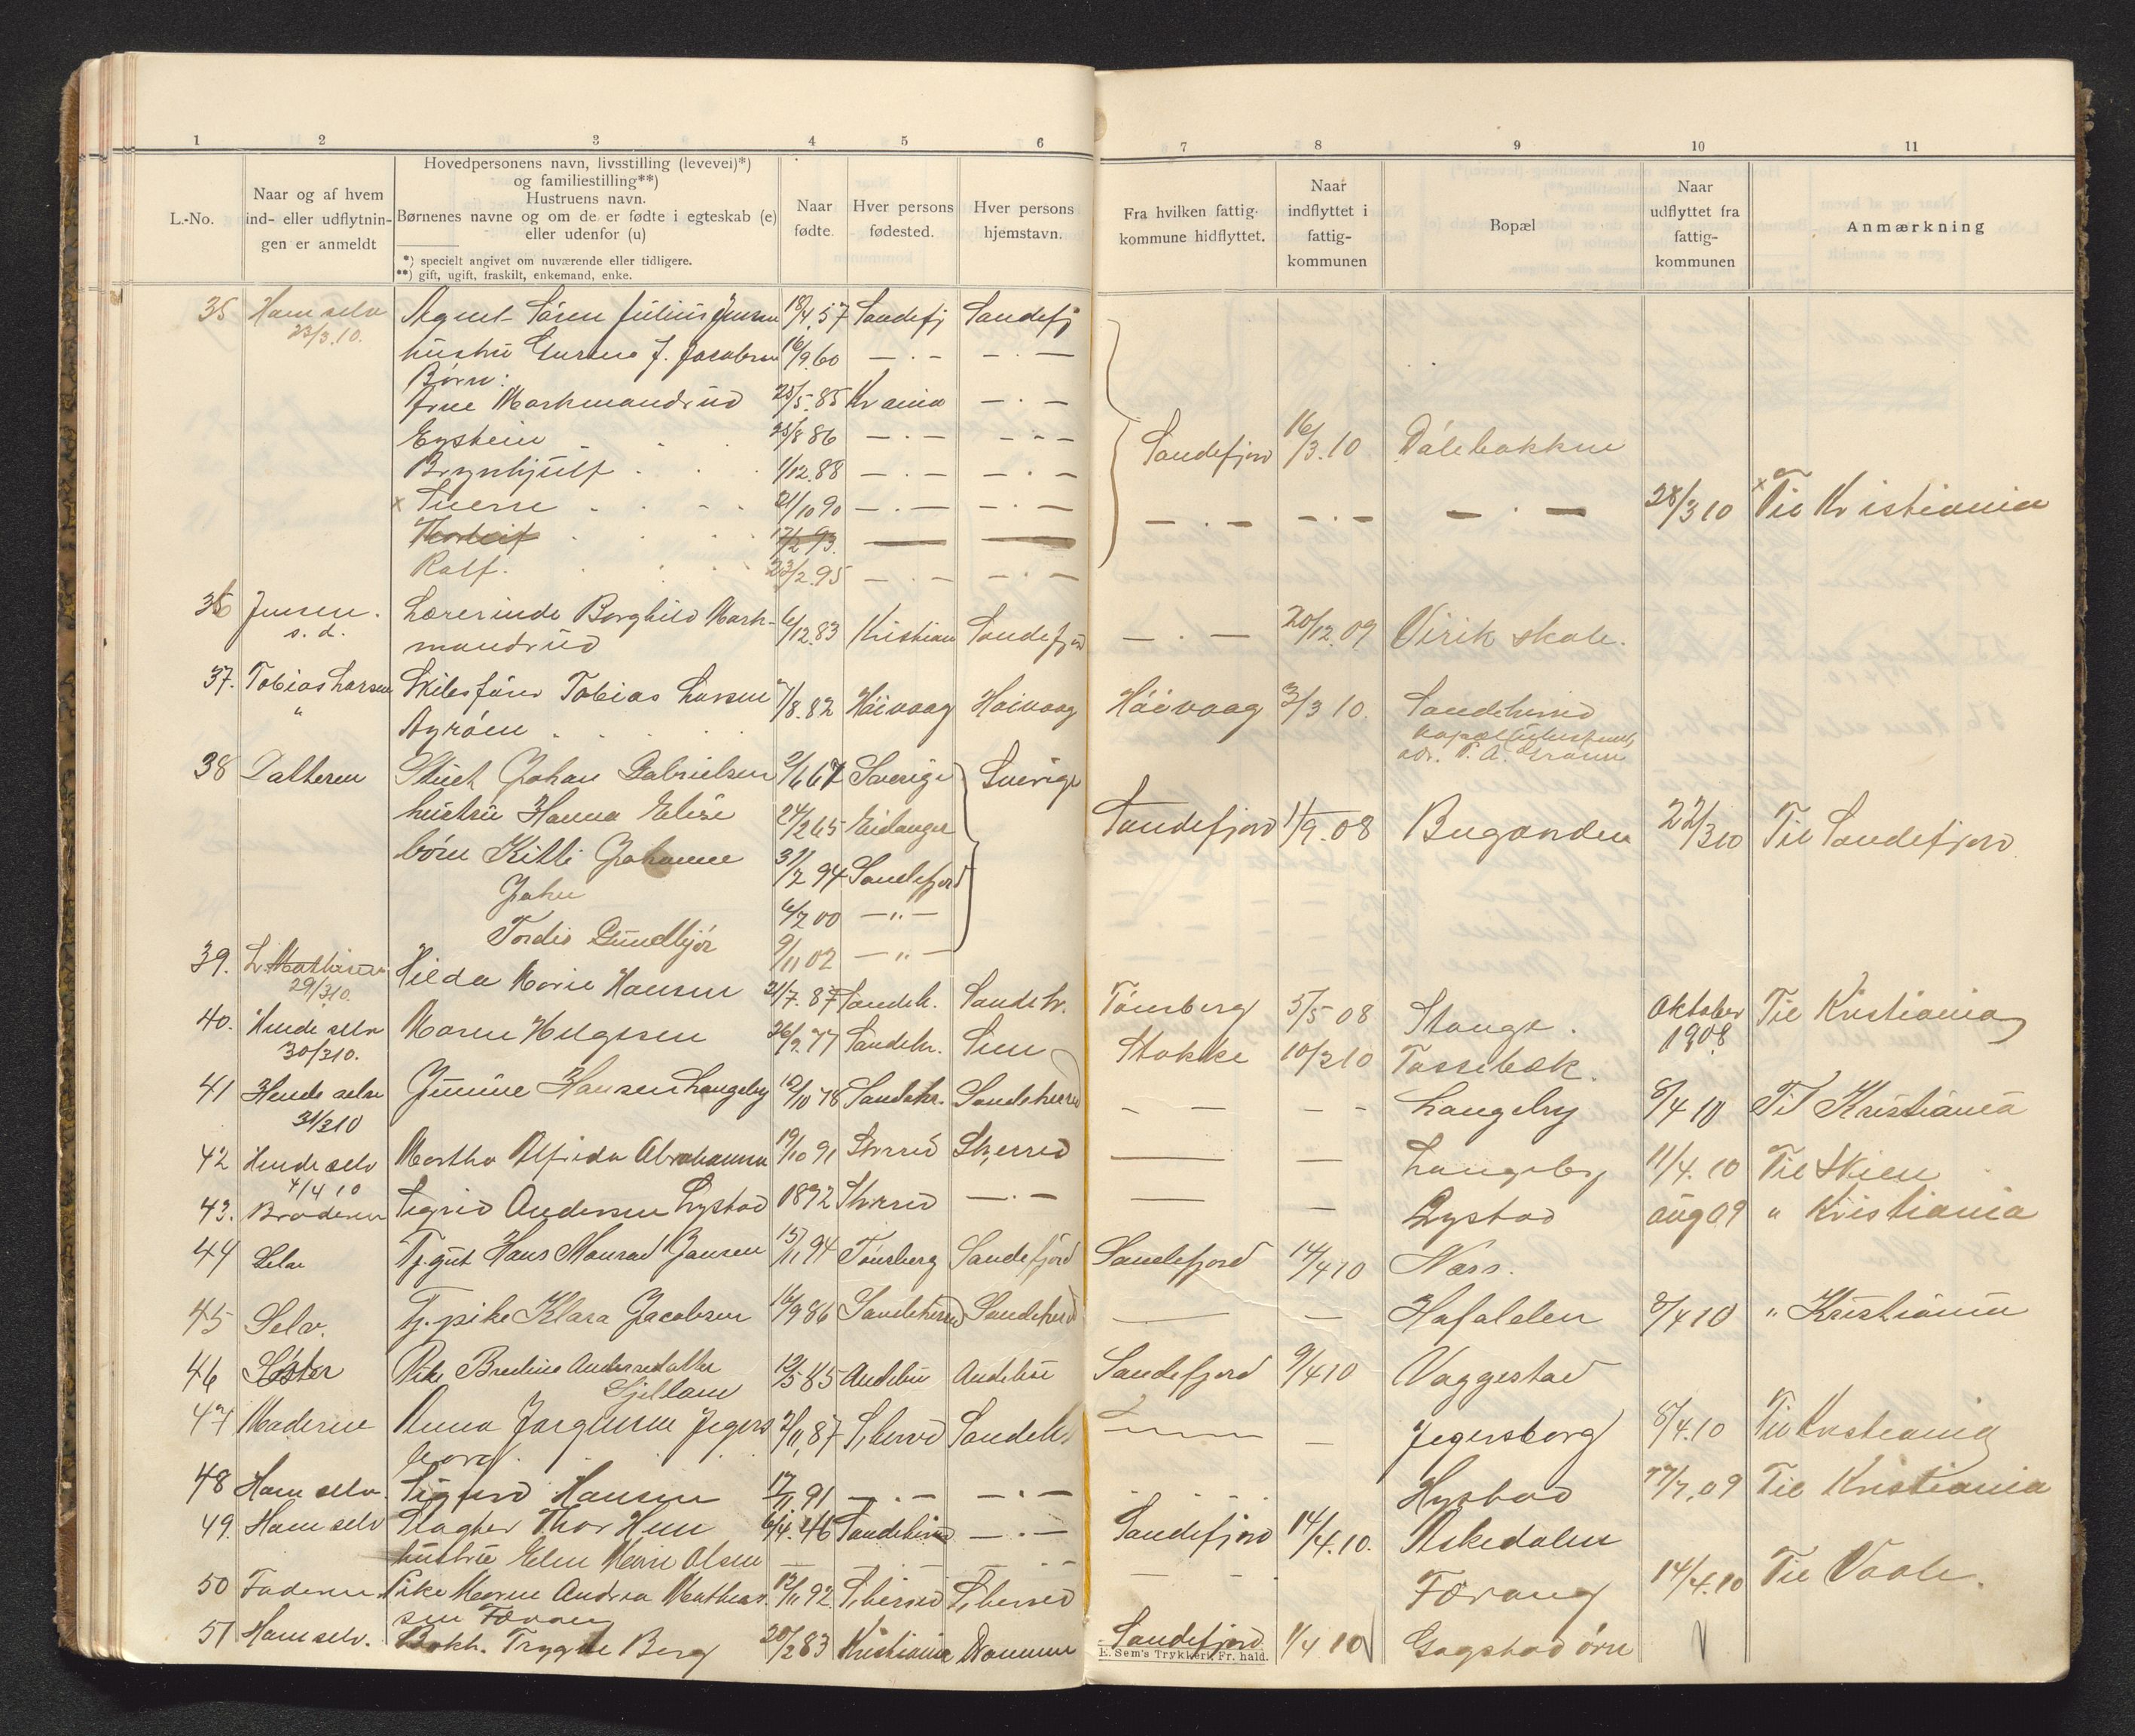 1 2 3 4 5 6 7 8 9 10 11
L.-No.
Naar og af hvem
ind- eller udflytnin-
gen er anmeldt
Hovedpersonens navn, livsstilling (levevei)*)
og familiestilling**)
Hustruens navn.
Børnenes navne og om de er fødte i egteskab (e)
eller udenfor (u)
*) specielt angivet om nuværende eller tidligere.
**) gift, ugift, fraskilt, enkemand, enke.
Naar
fødte.
Hver persons
fødested.
Hver persons
hjemstavn.
Fra hvilken fattig-
kommune hidflyttet.
Naar
indflyttet i
fattig-
kommunen
Bopæl
Naar
udflyttet fra
fattig-
kommunen
Anmærkning
35 Ham selv Agent Sören Julius Jensen 18/4.57 Sandefj Sandefj
23/3.10. hustru J. Jacobsen 16/9.60 — . — — . —
Børn:
Arne Markmandrud 25/5.85 Kr ania — . —
Eystein 25/8 86 — . — — . — Sandefjord 16/3.10 Dölebakken
Brynhjulf 1/12.88 — . — — . —
x Sverre 21/10 90 — . — — . — — . — — . — — . — 28/3 10 x Til Kristiania
Thorleif 17/2 93.
Ralf. 23/2.95 — . — — . —
36 Jensen. Lærerinde Borghild Mark- 6/12.83 Kristian Sandefjord — . — 20/12.09 Virik skole.
s. d. mandrud
37. Tobias Larsen Tobias Larsen 7/8.82 Höivaag Höivaag Höivaag 3/3 10. Sandeherred
" Ayröen
38 Datteren Johan Gabrielsen 2/6 67 Sverige Sverige
hustru Hanna Elise 24/2 65 Eidanger Sandefjord 11/9.08 Bugarden 22/3 10 Til Sandefjord
börn Kitti Johanne 31/7 94 Sandefjord
John 6/7 00 — " —
Tordis Gundbjör 9/11 02 — " —
39. L. Mathisen Hilda Marie Hansen 21/7.87 Sandeh. Sandehr. Tönsberg 5/5 08 Stange. Oktober 1908 Til Kristiania
29/3 10.
40. Hende selv Maren Helgesen 26/2.77 Sandehr. Sem Stokke 10/3 10 Tassebæk.
30/3 10.
41 Hende selv Gunine Hansen Langeby 12/10 78 Sandehr. Sandeherred — — - - Langeby 8/4 10 Til Kristiania
31/3 10
42 Hende selv Martha Alfrida Abrahamsen 19/10 91 Shrred Sherred — — Langeby 11/4.10 Til Skien
4/4 10
43. Broderen Sigrid Andersen Lystad 1892 Shrred — . — — — Lystad aug 09 " Kristiania
44 Selv Tj.gut Hans Monrad Jansen 15/11 94 Tönsberg Sandefjord Sandefjord 14/4 10 Næss.
45 Selv. Tj.pike Klara Jacobsen 16/9 86 Sandeherred Sandeherred — — Hasaldelen 8/4 10 " Kristiania
46 Söster Pike Bredine Andersdatter 12/5 85 Andebu Andebu Sandefjord 9/4 10 Vaggestad
Gjellane
47 Moderen Anna Jørgensen Jegers 2/11,87 S.herred Sandeh. — Jegersborg 8/4.10 Til Kristiania
borg.
48 Ham selv. Sigurd Hansen 17/11.91 — . — — . — Hystad 27/7.09 Til Kristiania
49. Ham selv Slagter Thor Hem 6/4.46 Sandeherred — . — Sandefjord 14/4.10. Askedalen
hustru Elen Marie Olsen
50 Faderen Pike Maren Andrea Mathias 12/11 92. S.herred S.herred — Forang 14/4.10 Til Vaale.
sen
51 Ham selv. Bokh. Trygve Berg 20/2 83 Kristiania Drammen Sandefjord 1/4 10 Gogstad örn
E. Sem's Trykkeri, Fr. hald.